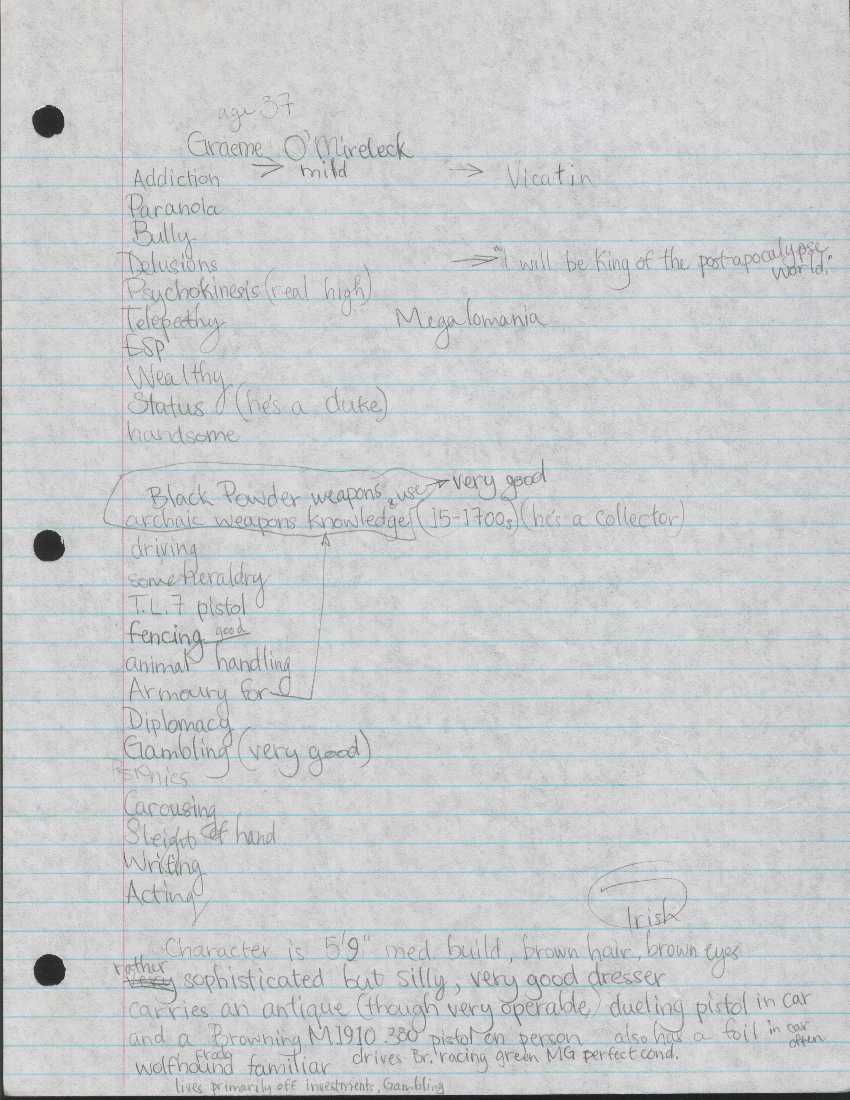 age 37
Graeme O'Mireleck
Addiction → mild → Vicatin
Paranoia
Bully
Delusions → "I will be King of the post-apocalypse
world."
Psychokinesis (real high)
Telepethy Megalomania
ESP
Wealthy
Status (he's a duke)
handsome
Black Powder weapons & use → very good
archaic weapons knowledge (15-1700s) (he's a collector)
driving
some Heraldry
T.L.7 pistol
fencing good
animal handling
Armoury for
Diplomacy
Gambling (very good)
Carousing
Sleight of hand
Writing
Acting
Irish
Character is 5'9" med. build, brown hair, brown eyes
rather
very sophisticated but silly, very good dresser
carries an antique (though very operable) dueling pistol in car
and a Browning M1910 .380 pistol on person also has a foil in car
often
wolfhound familiar drives Br. racing green MG perfect cond.
lives primarily off investments, Gambling